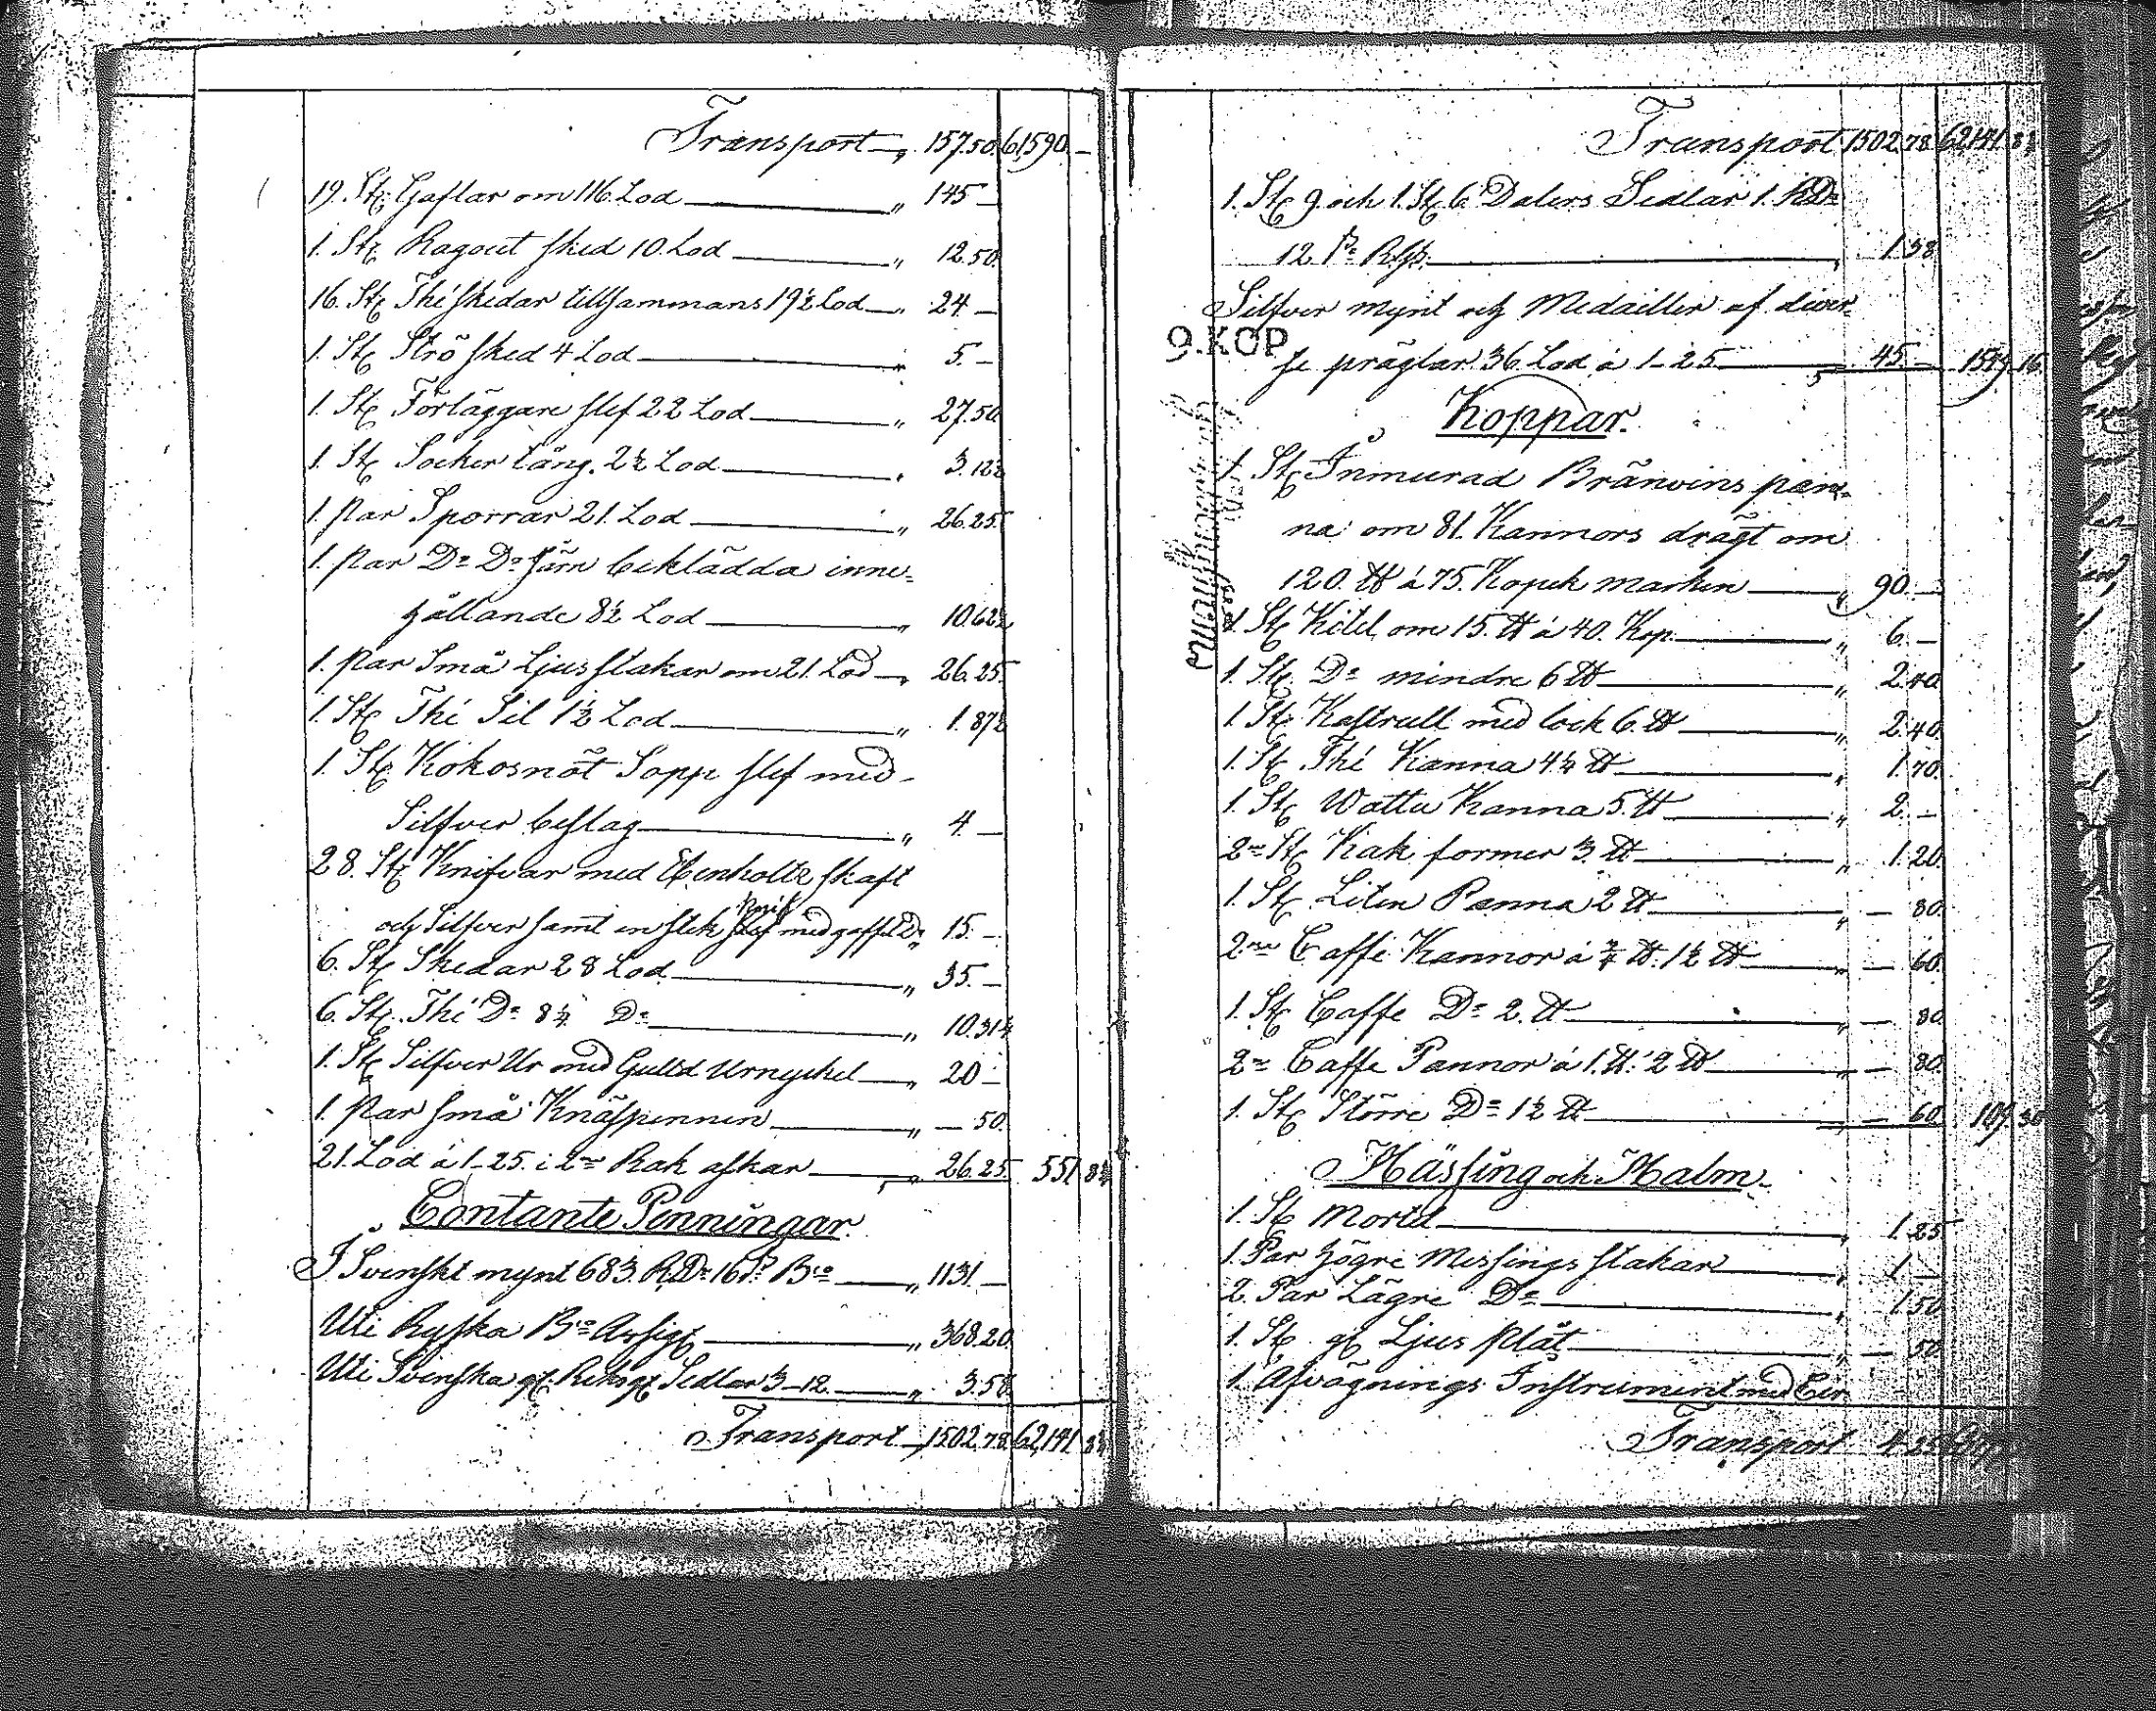 Transport — " 157.50. 61,590. —
19. St. Gaflar om 116 Lod — " 145 —
1. St. Ragout sked 10. Lod — " 12.50.
16. St. Thé skedar tillsammans 19½ Lod — " 24 —
1. St. Strö sked 4 Lod — " 5. —
1. St. Förläggare slef 22 Lod — " 27.50.
1. St. Socker tång. 2½ Lod — " 3.12½
1. Par Sporrar 21. Lod — " 26.25.
1. Par Do Do Järn beklädda inne-
hållande 8½ Lod — " 10.62½
1. Par Små Ljusstakar om 21. Lod — " 26.25.
1. St. Thé Sil 1½ Lod — " 1.87½
1. St. Kokosnöt Sopp slef med
Silfver beslag — " 4. —
28. St. Knifvar med Ebenholtz skaft
och Silfver samt en stek knif med gaffel Do " 15. —
6. St. Skedar 28 Lod — " 35. —
6. St. Thé Do 8¼ Do — " 10.31¼
1. St. Silfver Ur med Guld Urnyckel — " 20 —
1. Par små Knäspennen — " — 50.
21. Lod à 1-25. i 2ne Rak askar — " 26.25. 551. 8¼
Contante Penningar.
I Svenskt mynt 683. RDr 16 β Bco — " 1131. —
Uti Ryska Bco Assig. — " 368.20.
Uti Svenska gl. Riksg. Sedlar 3-12. — " 3.58.
Transport — 1502.78. 62,141. 8¼
Transport 1502.78. 62,141. 8¼
1. St. 9. och 1. St. 6 Dalers Sedlar 1. RDr
12. β Rgs. — " 1.38
Silfver mynt och Medailler af diver-
9. KOP
se präglar 36 Lod à 1-25 — " 45. — 1549.16.
Koppar.
1. St. Inmurad Bränvins pan-
na om 81. Kannors drägt om
120. ℔ à 75. Kopek marken — " 90. —
1. St. Kitel om 15. ℔ à 40. Kop. — " 6. —
1. St. Do mindre 6 ℔ — " 2.40.
1. St. Kastrull med lock 6. ℔ — " 2.40.
1. St. Thé Kanna 4¼ ℔ — " 1.70.
1. St. Wattu Kanna 5. ℔ — " 2. —
2ne St. Kak former 3. ℔ — " 1.20.
1. St. Liten Panna 2 ℔ — " — 80.
2ne Caffe Kannor à ¾ ℔. 1½ ℔ — " — 60.
1. St. Caffe Do 2. ℔ — " — 80.
2ne Caffe Pannor à 1. ℔. 2 ℔ — " — 80.
1. St. Större Do 1½ ℔ — — 60. 109.30
Mässing och Malm.
1. St. Mortel — " 1.25
1. Par högre Messings stakar — " 1 —
2. Par Lägre Do — " 1.50
1. St. gl. Ljus plåt — " — 50.
1. Afvägnings Instrument med Cir-
Transport 4.25